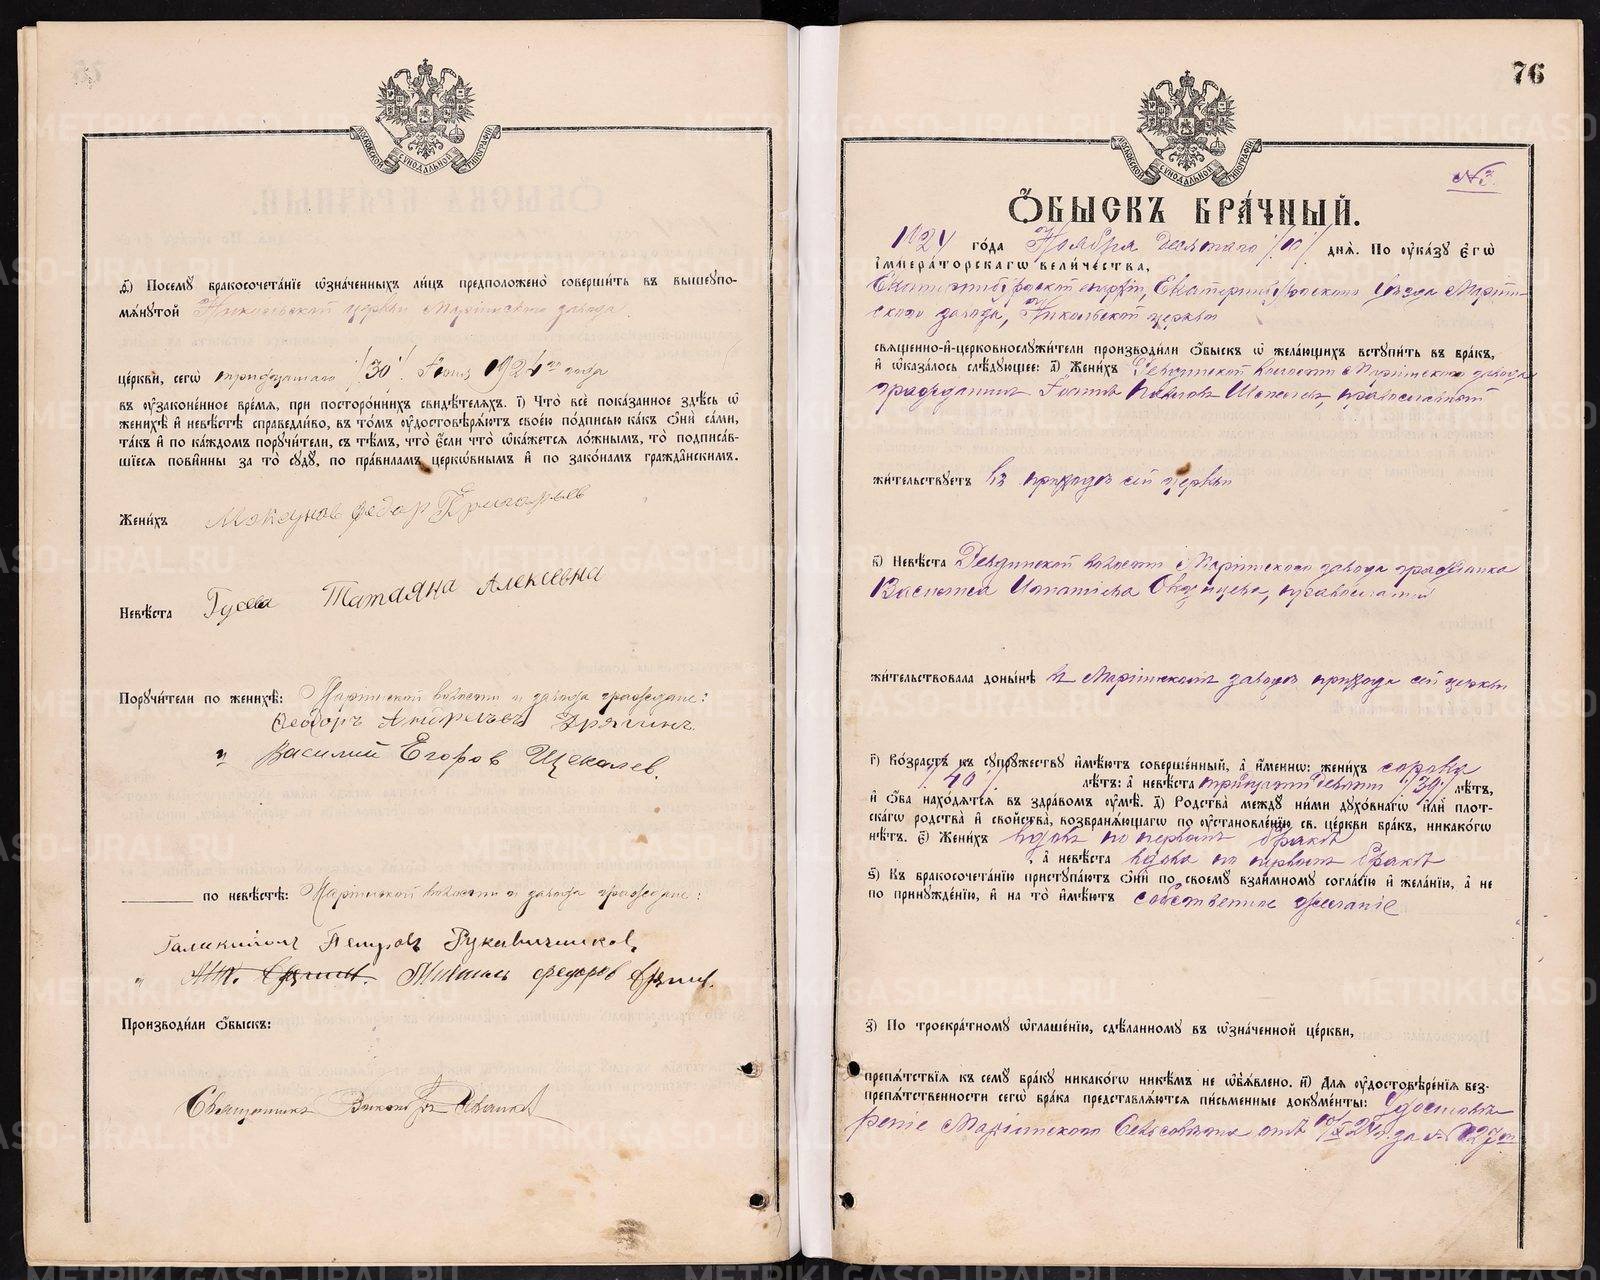 МОСКОВСКОЙ СѴНОДАЛЬНОЙ ТИПОГРАФІИ
д҃) Посемꙋ бракосочета́нїе ѡ҆зна́ченныхъ ли́цъ предполо́жено соверши́ть въ вышеꙋпо-
мѧ́нꙋтой Никольской церкви Маріинскаго завода.
це́ркви, сегѡ̀ тридцатаго /30/ Іюня 1924го года
въ ᲂу҆зако́ненное вре́мѧ, при посторо́ннихъ свидѣ́телѧхъ. і҃) Что̀ всѐ пока́занное здѣ́сь ѡ҆
женихѣ̀ и҆ невѣ́стѣ справедли́во, въ то́мъ ᲂу҆достовѣрѧ́ютъ свое́ю по́дписью ка́къ ѻ҆нѝ са́ми,
та́къ и҆ по ка́ждомъ порꙋчи́тели, съ тѣ́мъ, что̀ є҆́сли что̀ ѡ҆ка́жетсѧ ло́жнымъ, то̀ подписа́в-
шїесѧ пови́нны за то̀ сꙋдꙋ̀, по пра́виламъ церко́внымъ и҆ по зако́намъ гражда́нскимъ.
Жени́хъ Мокѣунов Федор Григорьев
Невѣ́ста Гусева Татаяна Алексевна
Порꙋчи́тели по женихѣ̀: Маріинской волости и завода граждане:
Феодоръ Андреевъ Дрягинъ.
и Василий Егоров Щекалев.
по невѣ́стѣ: Маріинской волости и завода граждане:
Галикион Петров Рукавишников,
" Михаилъ Федоров
Производи́ли ѻ҆́быскъ:
Священникъ
76
МОСКОВСКОЙ СѴНОДАЛЬНОЙ ТИПОГРАФІИ
№3.
Ѻ҆́БЫСКЪ БРА́ЧНЫЙ.
1924 го́да Ноября десятаго /10/ днѧ̀. По ᲂу҆ка́зꙋ є҆гѡ̀
и҆мпера́торскагѡ вели́чества,
Екатеринбургской епархіи, Екатеринбургскаго уѣзда Маріин-
скаго завода, Никольской церкви
свѧще́нно-и҆-церковнослꙋжи́тели производи́ли ѻ҆́быскъ ѡ҆ жела́ющихъ встꙋпи́ть въ бра́къ,
и҆ ѡ҆каза́лось слѣ́дꙋющее: а҃) Жени́хъ Ревдинской волости Маріинскаго завода
гражданинъ Павловъ православный
жи́тельствꙋетъ въ приходѣ сей церкви
в҃) Невѣ́ста Ревдинской волости Маріинскаго завода гражданка
Василиса Игнатіева православная
жи́тельствовала доны́нѣ въ Маріинскомъ заводѣ прихода сей церкви
г҃) Во́зрастъ къ сꙋпрꙋ́жествꙋ и҆мѣ́ютъ соверше́нный, а҆ и҆́меннѡ: жени́хъ сорока
/40/ лѣ́тъ: а҆ невѣ́ста тридцати девяти /39/ лѣ́тъ,
и҆ ѻ҆́ба нахо́дѧтсѧ въ здра́вомъ ᲂу҆мѣ̀. д҃) Родства̀ междꙋ̀ ни́ми дꙋхо́внагѡ и҆лѝ пло́т-
скагѡ родства̀ и҆ сво́йства, возбранѧ́ющагѡ по ᲂу҆становле́нїю св. це́ркви бра́къ, никако́гѡ
нѣ́тъ. є҃) Жени́хъ вдовъ по первомъ бракѣ
, а҆ невѣ́ста вдова по первомъ бракѣ
ѕ҃) Къ бракосочета́нїю пристꙋпа́ютъ ѻ҆нѝ по своемꙋ̀ взаи́мномꙋ согла́сїю и҆ жела́нїю, а҆ не
по принꙋжде́нїю, и҆ на то̀ и҆мѣ́ютъ собственное желаніе
з҃) По троекра́тномꙋ ѡ҆глаше́нїю, сдѣ́ланномꙋ въ ѡ҆зна́ченной це́ркви,
препѧ́тствїѧ къ семꙋ̀ бра́кꙋ никако́гѡ никѣ́мъ не ѡ҆б̾ѧ́влено. и҃) Длѧ ᲂу҆достовѣре́нїѧ без-
препѧ́тственности сегѡ̀ бра́ка представлѧ́ютсѧ пи́сьменные докꙋме́нты: Удостовѣ-
реніе Маріинскаго Сельсовѣта отъ 24г. за №